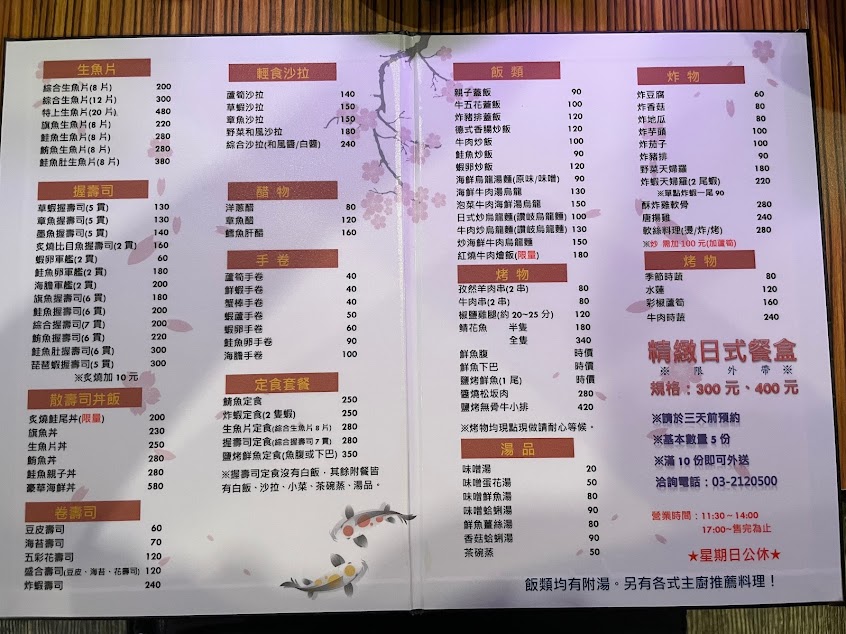 生魚片
綜合生魚片(8 片) 200
綜合生魚片(12 片) 300
特上生魚片(20 片) 480
旗魚生魚片(8 片) 220
鮭魚生魚片(8 片) 280
鮪魚生魚片(8 片) 280
鮭魚肚生魚片(8 片) 380
握壽司
草蝦握壽司(5 貫) 130
章魚握壽司(5 貫) 130
墨魚握壽司(5 貫) 140
炙燒比目魚握壽司(2 貫) 160
蝦卵軍艦(2 貫) 60
鮭魚卵軍艦(2 貫) 180
海膽軍艦(2 貫) 200
旗魚握壽司(6 貫) 180
鮭魚握壽司(6 貫) 200
綜合握壽司(7 貫) 200
鮪魚握壽司(6 貫) 220
鮭魚肚握壽司(6 貫) 300
琵琶蝦握壽司(5 貫) 300
※炙燒加 10 元
散壽司丼飯
炙燒鮭尾丼(限量) 200
旗魚丼 230
生魚片丼 250
鮪魚丼 280
鮭魚親子丼 280
豪華海鮮丼 580
卷壽司
豆皮壽司 60
海苔壽司 70
五彩花壽司 120
盛合壽司(豆皮、海苔、花壽司) 120
炸蝦壽司 240
輕食沙拉
蘆筍沙拉 140
草蝦沙拉 150
章魚沙拉 150
野菜和風沙拉 180
綜合沙拉(和風醬/白醬) 240
醋物
洋蔥醋 80
章魚醋 120
鱈魚肝醋 160
手卷
蘆筍手卷 40
鮮蝦手卷 40
蟹棒手卷 40
蝦蘆手卷 50
蝦卵手卷 60
鮭魚卵手卷 90
海膽手卷 100
定食套餐
鯖魚定食 250
炸蝦定食(2 隻蝦) 250
生魚片定食(綜合生魚片 8 片) 280
握壽司定食(綜合握壽司 7 貫) 280
鹽烤鮮魚定食(魚腹或下巴) 350
※握壽司定食沒有白飯，其餘附餐皆
有白飯、沙拉、小菜、茶碗蒸、湯品。
飯類
親子蓋飯 90
牛五花蓋飯 100
炸豬排蓋飯 120
德式香腸炒飯 90
牛肉炒飯 100
鮭魚炒飯 90
蝦卵炒飯 120
海鮮烏龍湯麵(原味/味噌) 90
海鮮牛肉湯烏龍 130
泡菜牛肉海鮮湯烏龍 150
日式炒烏龍麵(讚岐烏龍麵) 100
牛肉炒烏龍麵(讚岐烏龍麵) 130
炒海鮮牛肉烏龍麵 150
紅燒牛肉燴飯(限量) 180
烤物
孜然羊肉串(2 串) 80
牛肉串(2 串) 80
椒鹽雞腿(約 20~25 分) 120
鯖花魚 半隻 180
全隻 340
鮮魚腹 時價
鮮魚下巴 時價
鹽烤鮮魚(1 尾) 時價
醬燒松坂肉 280
鹽烤無骨牛小排 420
※烤物均現點現做請耐心等候。
湯品
味噌湯 20
味噌蛋花湯 50
味噌鮮魚湯 80
味噌蛤蜊湯 90
鮮魚薑絲湯 80
香菇蛤蜊湯 90
茶碗蒸 50
炸物
炸豆腐 60
炸香菇 80
炸地瓜 80
炸芋頭 100
炸茄子 100
炸豬排 90
野菜天婦羅 100
炸蝦天婦羅(2 尾蝦) 220
※單點炸蝦一尾 90
酥炸雞軟骨 280
唐揚雞 240
軟絲料理(燙/炸/烤) 240
※炒 需加 100 元(加蘆筍)
烤物
季節時蔬 80
水蓮 120
彩椒蘆筍 160
牛肉時蔬 240
精緻日式餐盒
※ 限 外 帶 ※
規格：300 元、400 元
※請於三天前預約
※基本數量 5 份
※滿 10 份即可外送
洽詢電話：03-2120500
營業時間：11:30～14:00
17:00~售完為止
★星期日公休★
飯類均有附湯。另有各式主廚推薦料理！